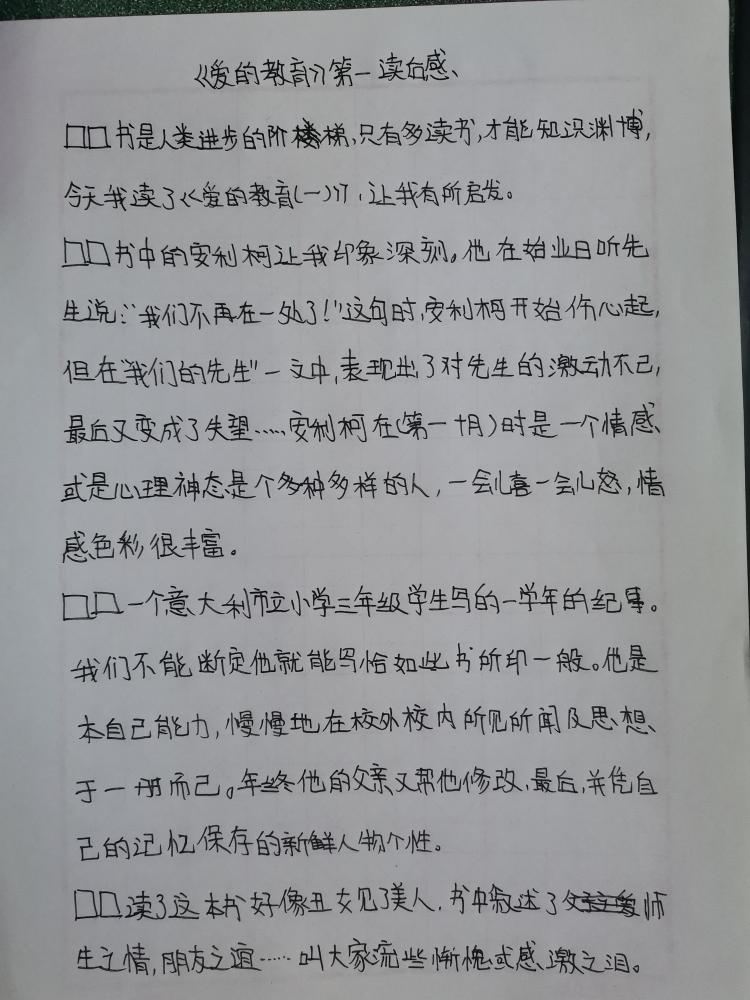 《爱的教育》第一读后感、
□□书是人类进步的阶梯,只有多读书,才能知识渊博,
今天我读了《爱的教育(一)》,让我有所启发。
□□书中的安利柯让我印象深刻。他在始业日听先
生说:“我们不再在一处了!”这句时,安利柯开始伤心起,
但在“我们的先生”一文中,表现出了对先生的激动不已,
最后又变成了失望……安利柯在(第一十月)时是一个情感、
或是心理神态是个多种多样的人,一会儿喜一会儿怒,情
感色彩很丰富。
□□一个意大利市立小学三年级学生写的一学年的纪事。
我们不能断定他就能写恰如此书所印一般。他是
本自己能力,慢慢地在校外校内所见所闻及思想、
于一册而已。年终他的父亲又帮他修改,最后,并凭自
己的记忆保存的新鲜人物个性。
□□读了这本书好像丑女见了美人,书中叙述了师
生之情,朋友之谊……叫大家流些惭愧或感激之泪。